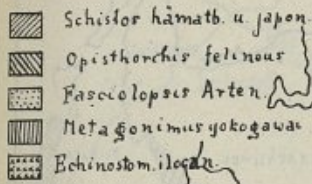 Schistos hämatb. u. japon.
Opisthorchis felinous
Fasciolopsis Arten.
Metagonimus yokogawai
Echinostom. ilocan.